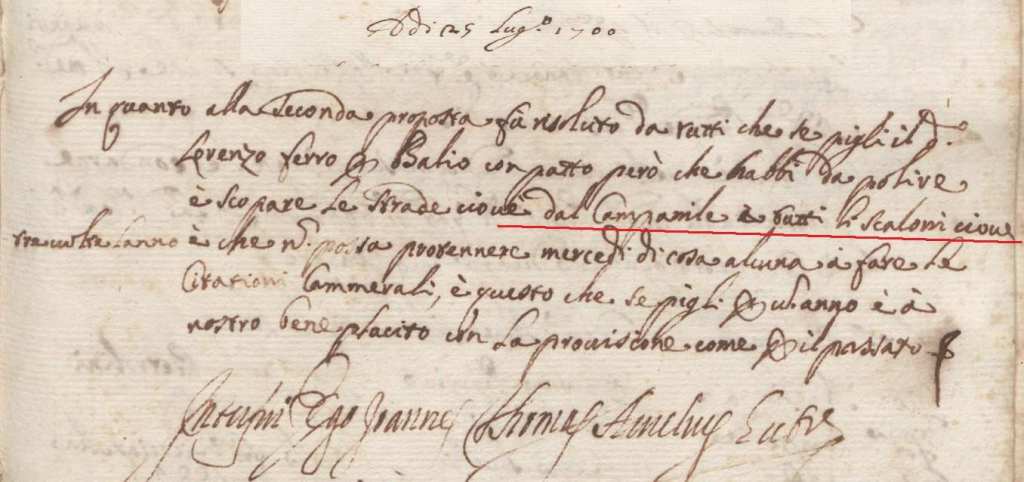 Adi 25 Lug.o 1700
In quanto alla seconda proposta fù resoluto da tutti che se pigli il d.o
Lorenzo ferro p Balio con patto però che habbi da polire
è scopare le strade cioue dal Campanile è tutti li scaloni cioue
tre uolte l'anno è che n. possa pretennere mercedi di cosa alcuna a fare le
Citationi Cammerali, è questo che se pigli p un anno è à
nostro beneplacito con la prouisione come p il passato
Ego Joannes Thomas